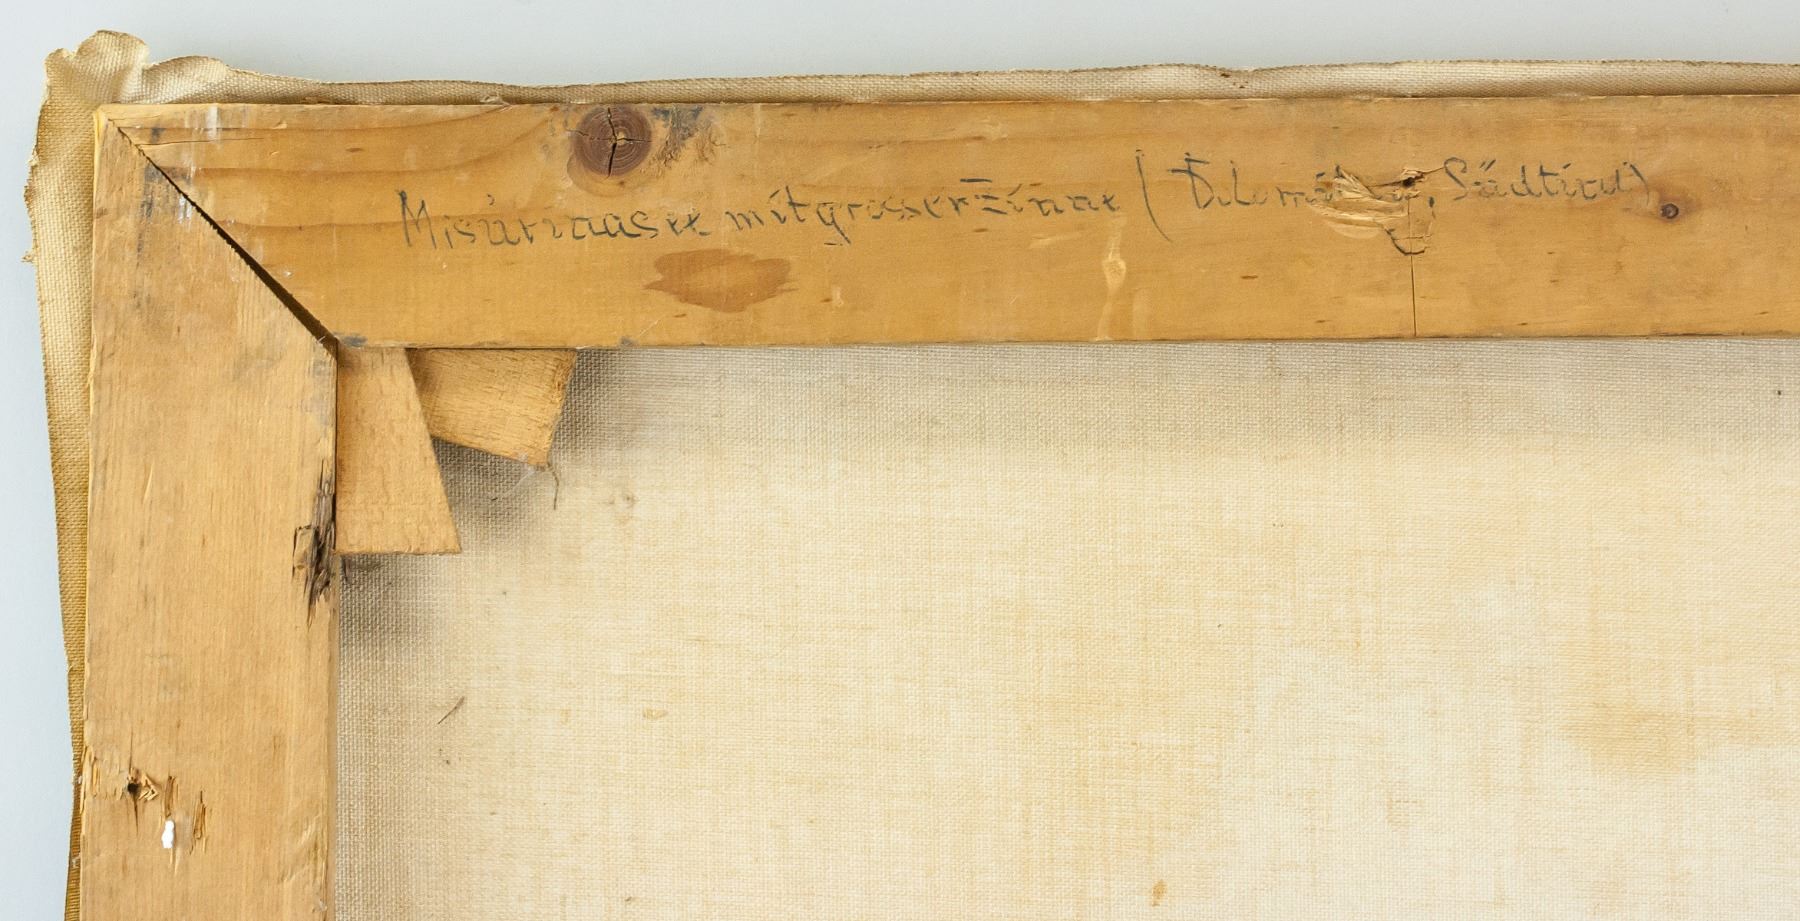 Misurinasee mit grosser Zinne (Dolomiten, Südtirol)